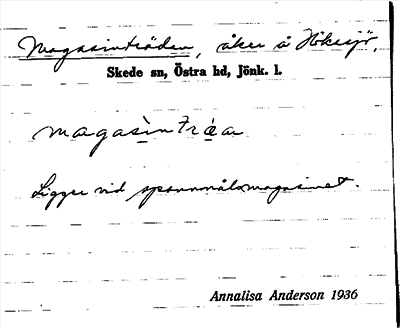 Magasinträden, åker å Höksjö.
Skede sn, Östra hd, Jönk. l.
magasìntrá̤a
Ligger vid spannmålsmagasinet.
Annalisa Anderson 1936